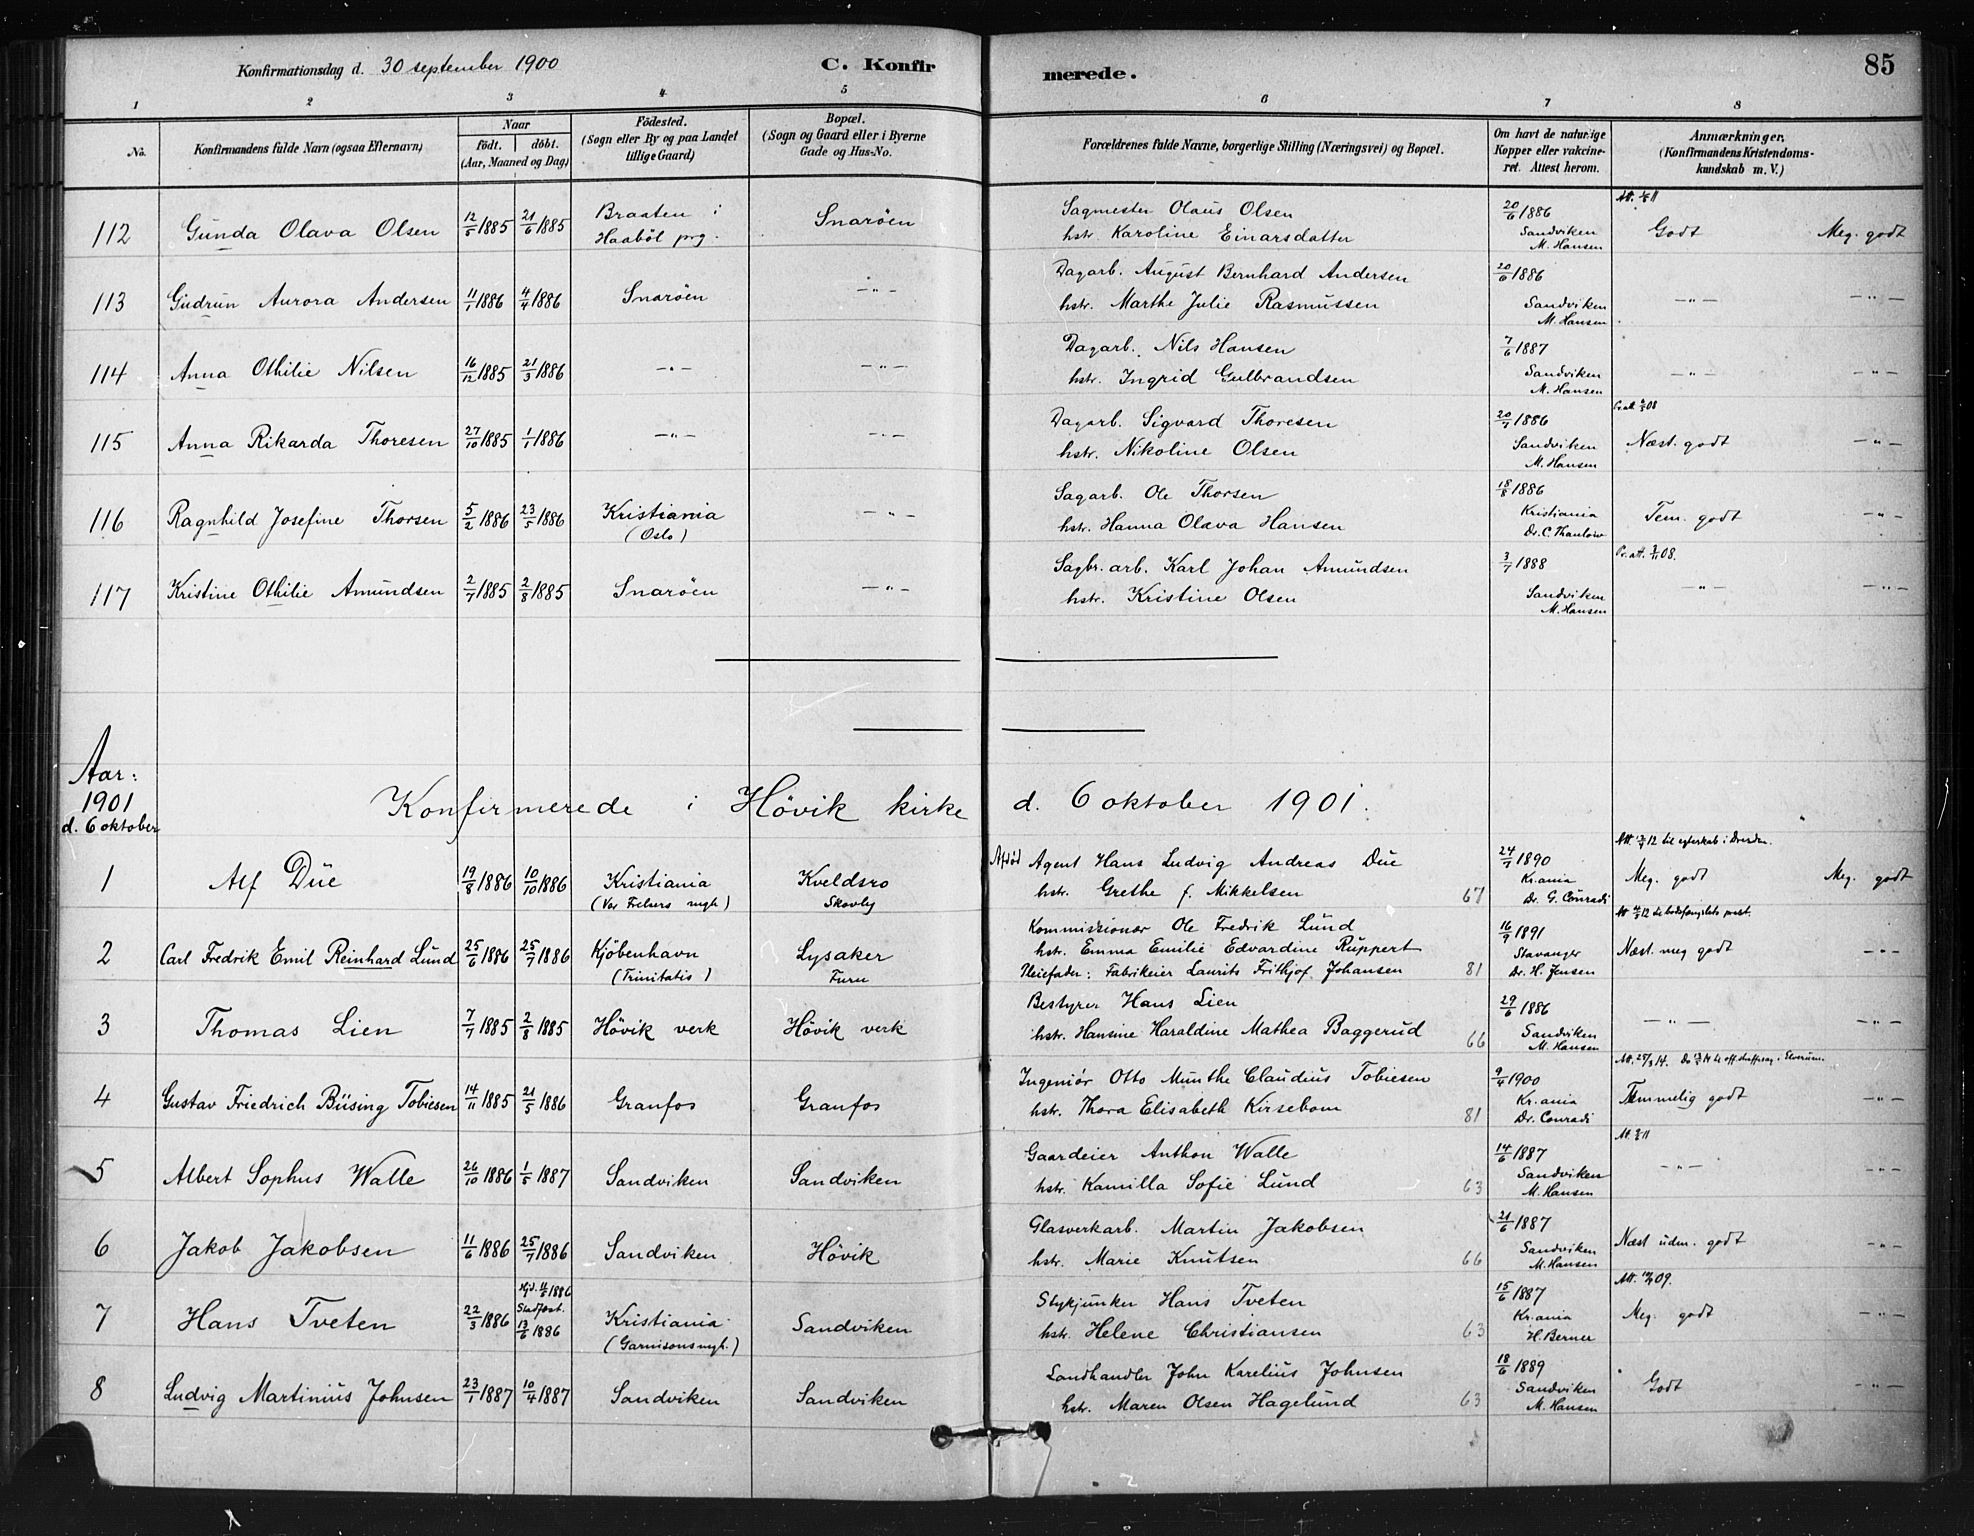 Konfirmationsdag d. 30 september 1900 C. Konfirmerede. 85
1 2 3 4 5 6 7 8
No. Konfirmandens fulde Navn (ogsaa Efternavn) Naar födt. döbt. (Aar, Maaned og Dag) Födested. (Sogn eller By og paa Landet tillige Gaard) Bopæl. (Sogn og Gaard eller i Byerne Gade og Hus-No. Forældrenes fulde Navne, borgerlige Stilling (Næringsvei) og Bopæl. Om havt de naturlige Kopper eller vakcineret. Attest herom. Anmærkninger, (Konfirmandens Kristendomskundskab m. V.)
112 Gunda Olava Olsen 12/5 1885 21/6 1885 Braaten i Snaröen Sagmester Olaus Olsen 20/6 1886 Godt Meg. godt
Haaböl prg. hstr. Karoline Einarsdatter Sandviken
M. Hansen
113 Gudrun Aurora Andersen 11/1 1886 4/4 1886 Snaröen —"— Dagarb. August Bernhard Andersen 20/6 1886 —"— —"—
hstr. Marthe Julie Rasmussen Sandviken
M. Hansen
114 Anna Othilie Nilsen 16/12 1885 21/3 1886 —"— —"— Dagarb. Nils Hansen 7/6 1887 —"— —"—
hstr. Ingrid Gulbrandsen Sandviken
M. Hansen
115 Anna Rikarda Thoresen 27/10 1885 1/1 1886 —"— —"— Dagarb. Sigvard Thoresen 20/7 1886 Næst. godt —"—
hstr. Nikoline Olsen Sandviken
M. Hansen
116 Ragnhild Josefine Thorsen 5/2 1886 23/5 1886 Kristiania —"— Sagarb. Ole Thorsen 18/8 1886 Tem. godt —"—
(Oslo) hstr. Hanna Olava Hansen Kristiania
Dr. C. Thaulow
117 Kristine Othilie Amundsen 2/7 1885 2/8 1885 Snaröen —"— Sagbr. arb. Karl Johan Amundsen 3/7 1888 —"— —"—
hstr. Kristine Olsen Sandviken
M. Hansen
Aar:
1901
d. 6 oktober
Konfirmerede i Hövik kirke d. 6 oktober 1901.
1 Alf Due 19/8 1886 10/10 1886 Kristiania Kveldsro Afdöd Agent Hans Ludvig Andreas Due 24/7 1890 Meg. godt Meg. godt
(Vor Frelsers mgh.) Skovly hstr. Grethe f. Mikkelsen 67 Kr.ania
Dr. G. Conradi
2 Carl Fredrik Emil Reinhard Lund 25/6 1886 25/7 1886 Kjöbenhavn Lysaker Kommissionær Ole Fredrik Lund 16/9 1891 Næst meg godt —"—
(Trinitatis) Furu hstr. Emma Emilie Edvardine Ruppert Stavanger
Pleiefader: Fabrikeier Laurits Frithjof Johansen 81 Dr. H. Jensen
3 Thomas Lien 7/7 1885 2/8 1885 Hövik verk Hövik verk Bestyrer Hans Lien 29/6 1886 —"— —"—
hstr. Hansine Haraldine Mathea Baggerud 66 Sandviken
M. Hansen
4 Gustav Friedrich Büsing Tobiesen 14/11 1885 21/5 1886 Granfos Granfos Ingeniör Otto Munthe Claudius Tobiesen 9/4 1900 Temmelig godt —"—
hstr. Thora Elisabeth Kirsebom 81 Kr.ania
Dr. Conradi
5 Albert Sophus Walle 26/10 1886 1/5 1887 Sandviken Sandviken Gaardeier Anthon Walle 14/6 1887 —"— —"—
hstr. Kamilla Sofie Lund 63 Sandviken
M. Hansen
6 Jakob Jakobsen 11/6 1886 25/7 1886 Sandviken Hövik Glasverkarb. Martin Jakobsen 21/6 1887 Næst udm. godt —"—
hstr. Marie Knutsen 66 Sandviken
M. Hansen
7 Hans Tveten 22/3 1886 Stadfæst. 13/6 1886 Kristiania Sandviken Stykjunker Hans Tveten 15/6 1887 Meg. godt —"—
(Garnisonsmgh.) hstr. Helene Christiansen 63 Kr.ania
H. Berner
8 Ludvig Martinius Johnsen 23/1 1887 10/4 1887 Sandviken Sandviken Landhandler John Karelius Johnsen 18/6 1889 Godt —"—
hstr. Maren Olsen Hagelund 63 Sandviken
M. Hansen